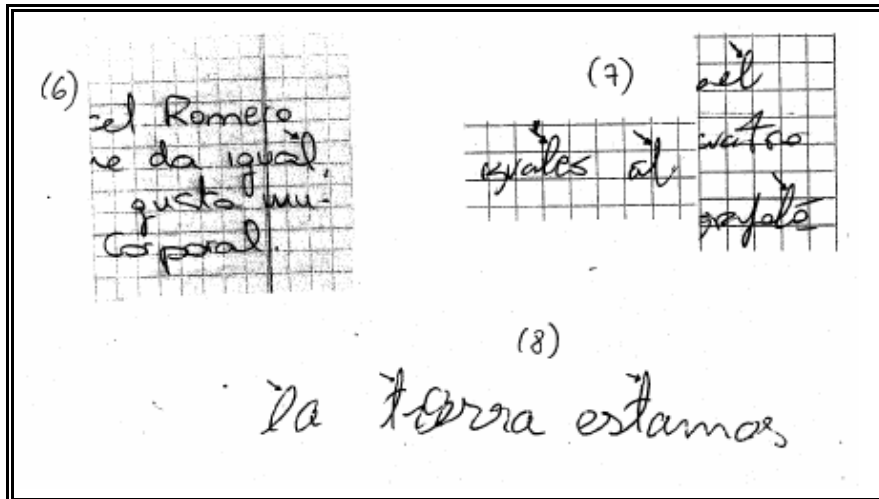 (6)
el Romero
e da igual.
gusta mu-
Corporal.
(7)
iguales al
el
cuatro
(8)
la tierra estamos